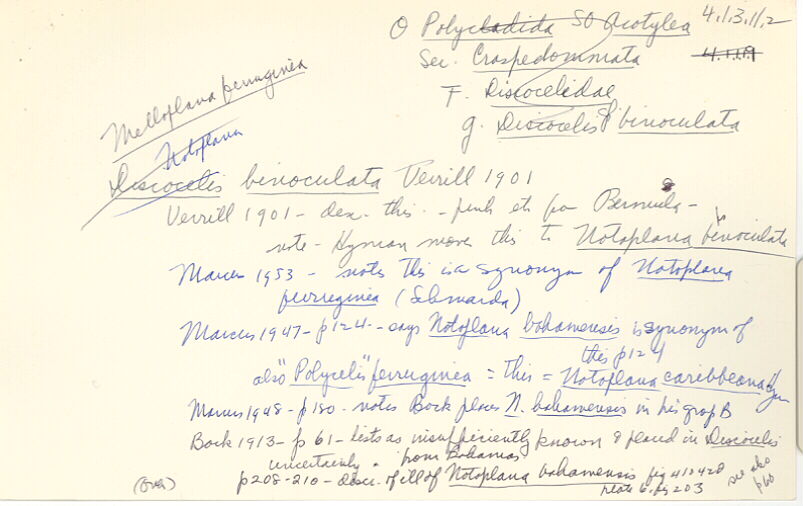 O Polycladida SO Acotylea 4.1.3.11.2
Sec. Craspedommata 4.1.1.9
F. Discocelidae
g. Discocelis binoculata
Melloplana ferruginea
Notoplana
Discocelis binoculata Verrill 1901
Verrill 1901 - desc. this - from Bermuda -
note - Hyman moves this to Notoplana binoculata
Marcus 1953 - notes this is a synonym of Notoplana
ferruginea (Schmarda)
Marcus 1947 - p124 - says Notoplana bahamensis is synonym of
this p124
also "Polycelis" ferruginea = this = Notoplana caribbeana Hyman
Marcus 1948 - p180 - notes Bock places N. bahamensis in his group B
Bock 1913 - p 61 - lists as insufficiently known & placed in Discocelis
uncertainly - from Bahamas
p208-210 - descr. & ill of Notoplana bahamensis fig 41 & 42
plate 6, fig 2 & 3
see also
p60
(over)